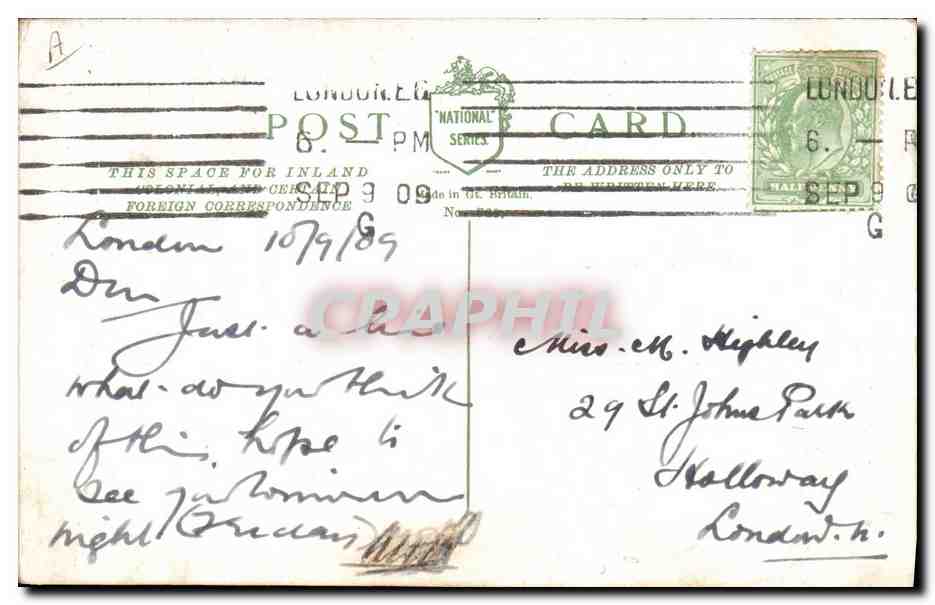 A
LONDON.E.C
LONDON.E
POST CARD
"NATIONAL"
SERIES.
6. — PM
6. — P
THIS SPACE FOR INLAND
COLONIAL AND CERTAIN
FOREIGN CORRESPONDENCE
THE ADDRESS ONLY TO
BE WRITTEN HERE.
de in Gt. Britain.
No.
SEP 9 09
SEP 9 0
G
G
HALFPENNY
London 10/9/09
Dm
Just a line
what do you think
of this, hope to
see you tomorrow
night (Friday)
Miss. M. Highley
29 St. Johns Park
Holloway
London. N.
CPAPHIL